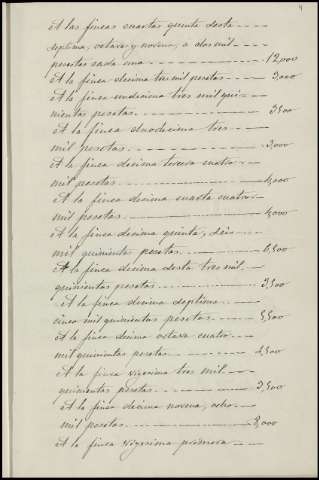 A las fincas cuarta, quinta, sesta
septima, octava y novena, a dos mil
pesetas cada una 12,000
A la finca décima tres mil pesetas 3,000
A la finca undecima tres mil qui-
nientas pesetas 3,500
A la finca duodecima tres
mil pesetas 3,000
A la finca décima tercera cuatro
mil pesetas 4,000
A la finca décima cuarta cuatro
mil pesetas 4,000
A la finca décima quinta, seis
mil quinientas pesetas 6,500
A la finca décima sesta tres mil
quinientas pesetas 3,500
A la finca décima septima
cinco mil quinientas pesetas 5,500
A la finca décima octava cuatro
mil quinientas pesetas 4,500
A la finca vigesima tres mil
quinientas pesetas 3,500
A la finca décima novena, ocho
mil pesetas 8,000
A la finca vigesima primera